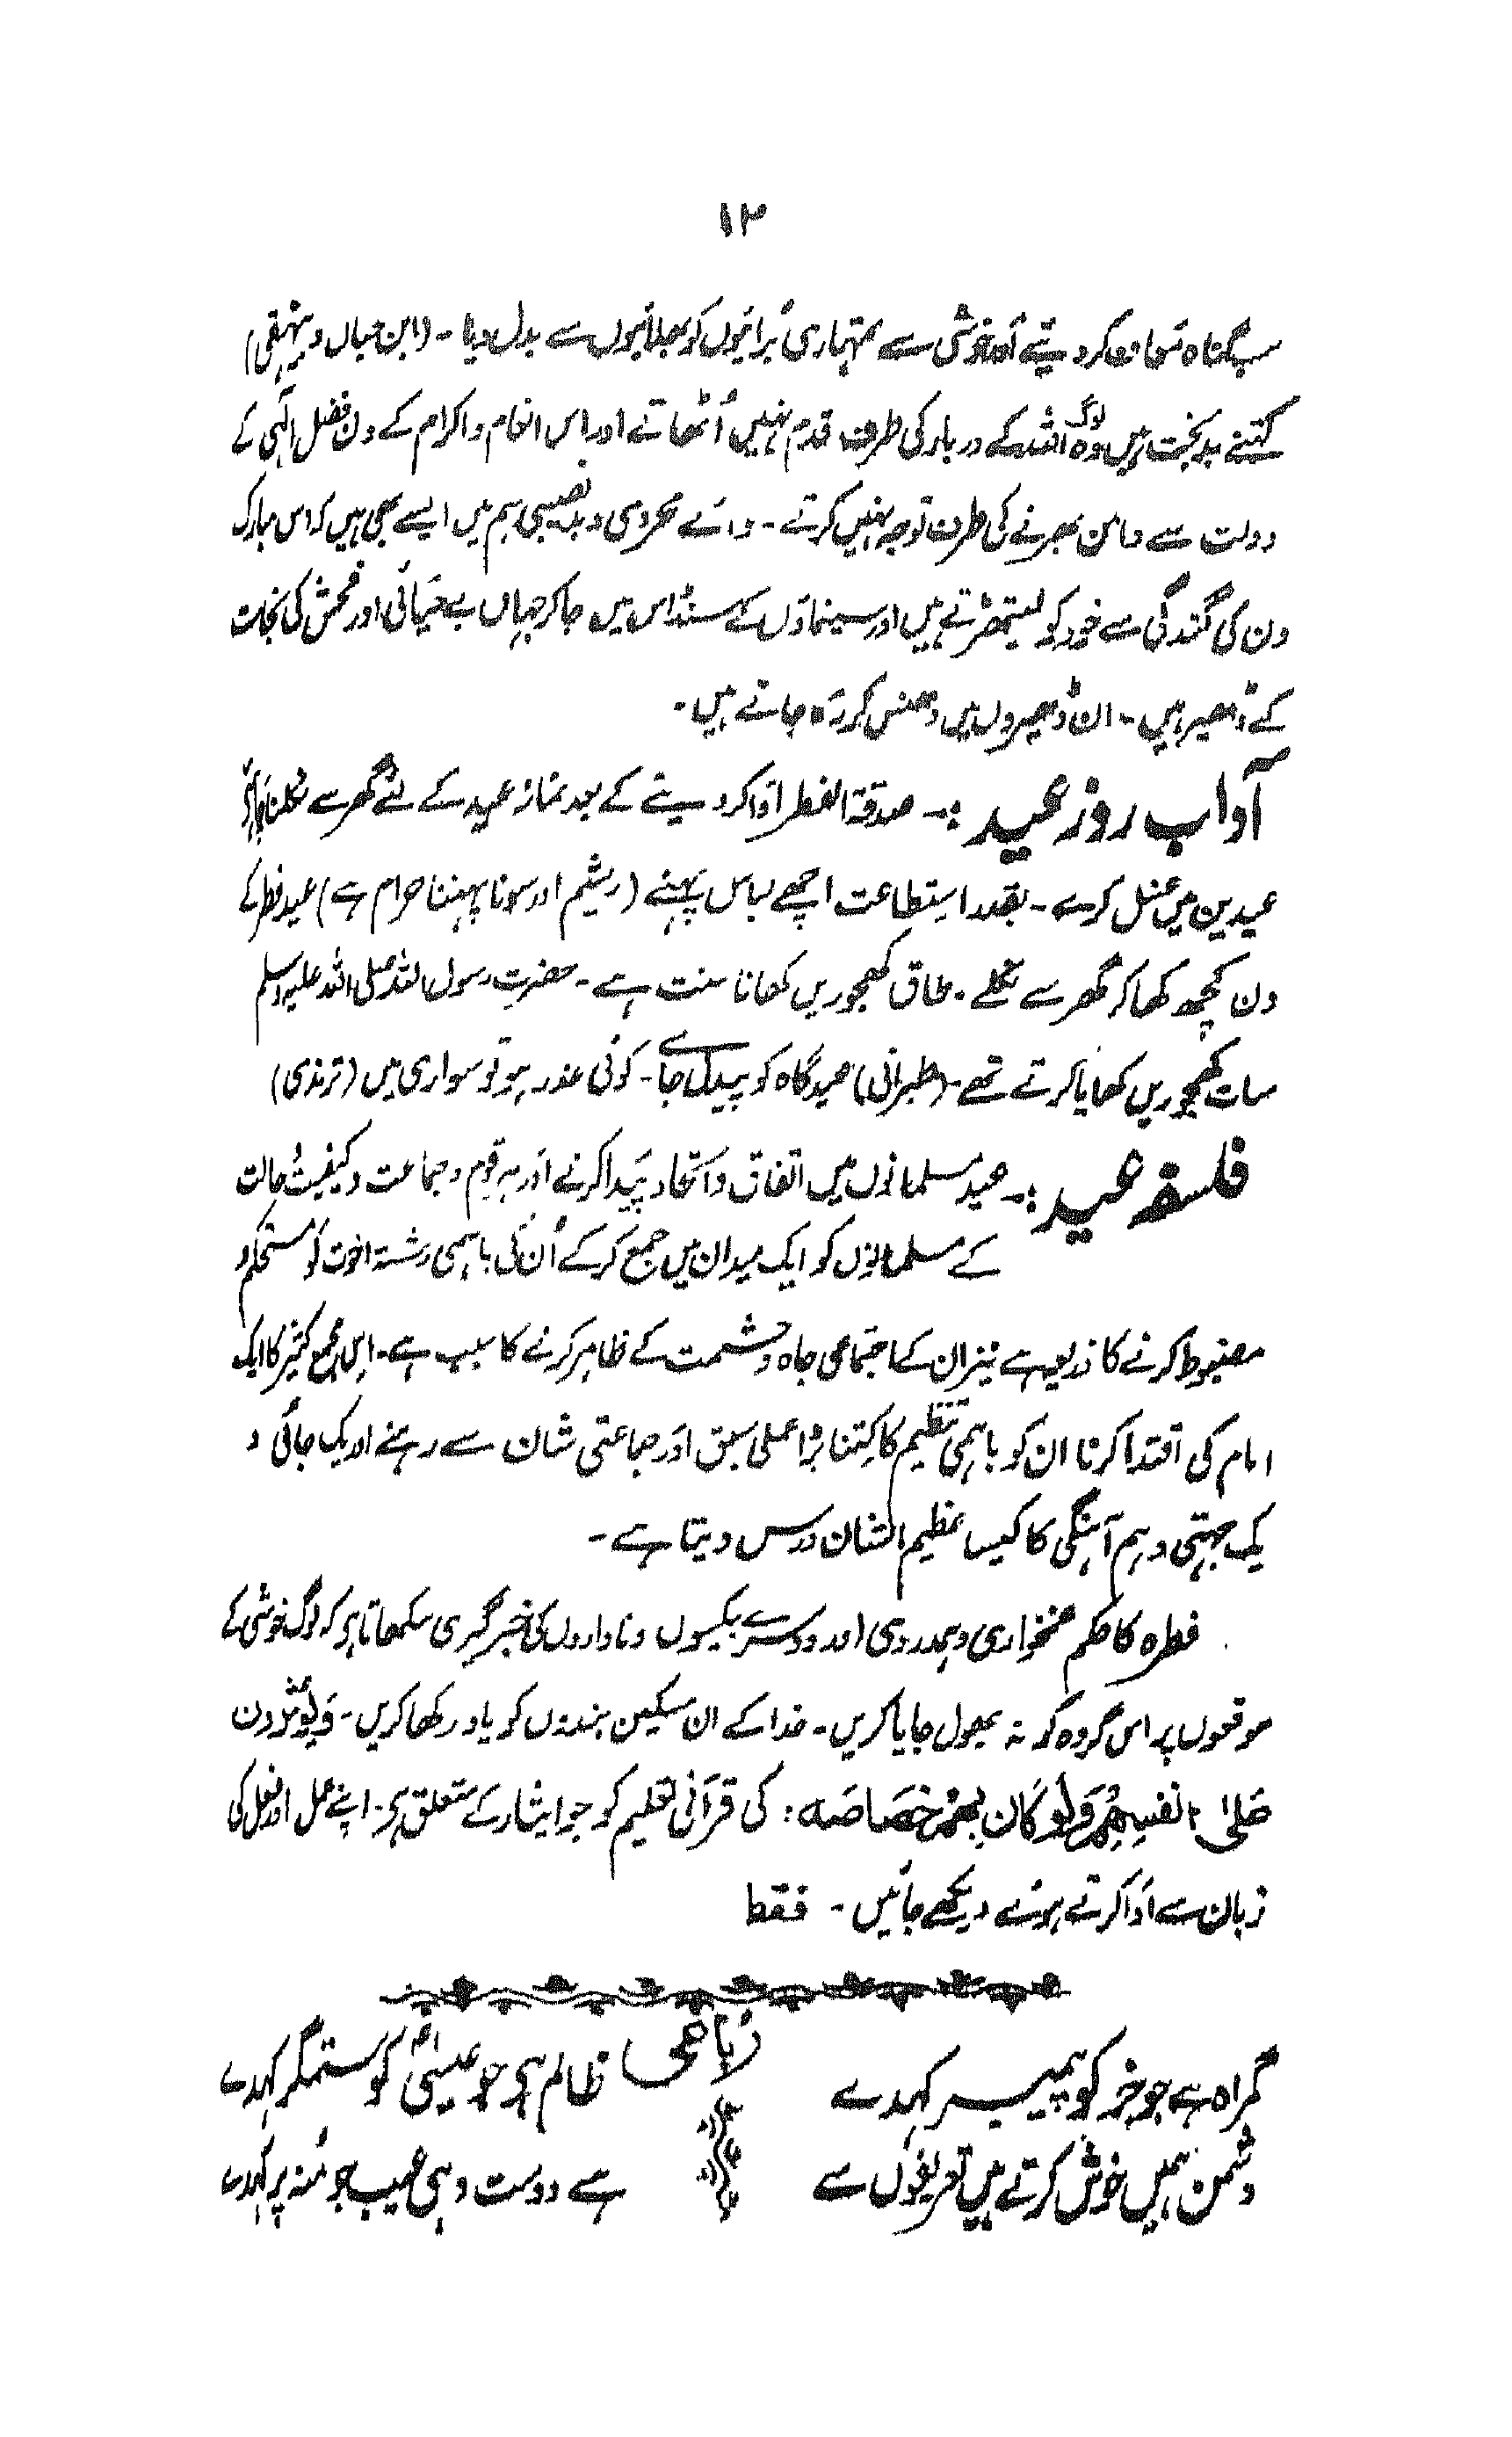 ۱۳
سب گناہ معاف کر دیتے اور خوشی سے تمہاری بُرائیوں کو بھلائیوں سے بدل دیا ۔ (ابن حبان و بیہقی)
کتنے بدبخت ہیں وہ لوگ اللہ کے دربار کی طرف قدم نہیں اُٹھاتے اور اس انعام و اکرام کے دن فضل الٰہی کے
دولت سے دامن بھرنے کی طرف توجہ نہیں کرتے ۔ وائے محرومی و بدنصیبی ہم میں ایسے بھی ہیں کہ اس مبارک
دن کی گندگی سے خود کو لیتھڑتے ہیں اور سینماؤں کے سنڈاس میں جا کر جہاں بے حَیائی اور فحش کی نجاست
کے ڈھیر ہیں ۔ ان ڈھیروں میں دھنس کر رَہ جاتے ہیں ۔
آداب روز عید :۔ صدقۃ الفطر اَدا کر دینے کے بعد نماز عید کے لئے گھر سے نکلنا چاہئے
عیدین میں غسل کرے ۔ بقدر استطاعت اچھے لباس پہنے (ریشم اور سونا پہننا حرام ہے) عید فطر کے
دن کچھ کھا کر گھر سے نکلے ۔ طاق کھجوریں کھانا سنت ہے ۔ حضرت رسول اللہ صلی اللہ علیہ وسلم
سات کھجوریں کھایا کرتے تھے ۔ (طبرانی) عیدگاہ کو پیدل جائے ۔ کوئی عذر ہو تو سواری میں (ترمذی)
فلسفہ عید :۔ عید مسلمانوں میں اتفاق و اتحاد پَیدا کرنے اَور ہر قوم و جماعت و کیفیت و حالت
کے مسلمانوں کو ایک میدان میں جمع کر کے اُن کی باہمی رشتہ اخوت کو مستحکم و
مضبوط کرنے کا ذریعہ ہے نیز ان کے اجتماعی جاہ و حشمت کے ظاہر کرنے کا سبب ہے ۔ اِس مجمع کثیر کا ایک
امام کی اقتدا کرنا ان کو باہمی تنظیم کا کِتنا بڑا عملی سبق اَور جماعتی شان سے رہنے اور یک جائی و
یک جہتی و ہم آہنگی کا کیسا عظیم الشان درس دیتا ہے ۔
فطرہ کا حکم غمخواری و ہمدردی اور دوسرے بیکسوں و ناداروں کی خبرگیری سکھاتا ہے کہ لوگ خوشی کے
موقعوں پر اس گروہ کو نہ بھول جایا کریں ۔ خدا کے ان مسکین بندوں کو یاد رکھا کریں ۔ وَيُؤثِرُونَ
عَلىٰ اَنفسِهِمْ وَلَو كَانَ بِهِمْ خَصَاصَه : کی قرآنی تعلیم کو جو ایثار کے متعلق ہے ۔ اپنے عمل اور فعل کی
زبان سے اَدا کرتے ہوئے دیکھے جائیں ۔ فقط
رُباعی
گمراہ ہے جو خر کو پیمبر کہدے
ظالم ہے جو عیسیٰؑ کو ستمگر کہدے
دشمن ہمیں خوش کرتے ہیں تعریفوں سے
ہے دوست وہی عیب جو مُنہ پر کہدے